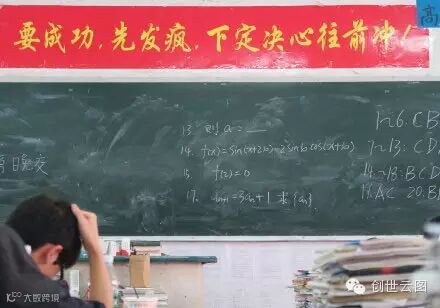 高
要成功,先发疯,下定决心往前冲!
13. 则a=__
14. f(x)=sin(x+2φ)-2sinφcos(x+φ)
15. f(x)=0
17. aₙ₊₁=3aₙ+1 求{aₙ}
日晚交
1~6. CB
7~13. CD
14~18. BCD
19. AC 20. B
大数跨境
创世云图